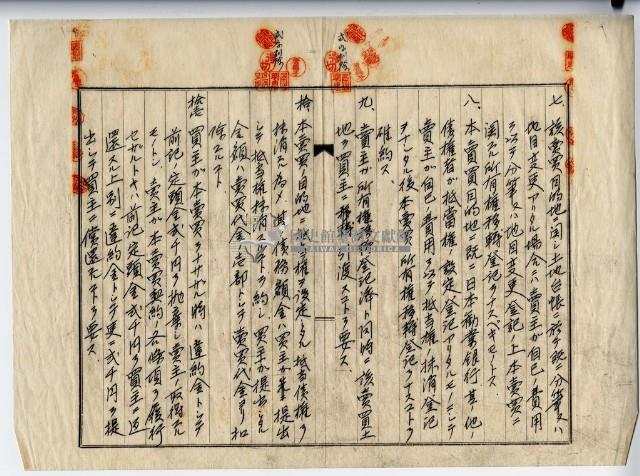 弐字削除
弐字削除
七、該賣買目的地ニ関シ土地台帳ニ於テ既ニ分筆又ハ
地目変更アリタル場合ニハ賣主カ自己ノ費用
ヲ以テ分筆又ハ地目変更登記ノ上本賣買ニ
関スル所有権移轉登記ヲナスベキモノトス
八、本賣買目的地ニ既ニ日本勧業銀行其ノ他ノ
債権者カ抵當権ノ設定登記アリタルモノニシテ
賣主カ自己ノ費用ヲ以テ抵当権ノ抹消登記
ヲナシタル後本賣買ノ所有権移轉登記ヲナスコトヲ
確約ス
九、賣主カ所有権移轉登記済ト同時ニ該賣買土
地ヲ買主ニ引渡スコトヲ要ス
拾、本賣買ノ目的地ニ抵当権ヲ設定シタル抵当債権ヲ
抹消スル為メ其ノ債務額金ハ買主カ提出
シテ抵当権抹消スルコトヲ約シ買主カ提出シタル
金額ハ賣買代金ノ壱部トシテ賣買代金ヨリ扣
除スルコト
拾壱、買主カ本賣買ヲナサザル時ハ違約金トシテ
前記ノ定頭金弐千円ヲ抛棄シ賣主ノ取得スル
モノトシ賣主カ本賣買契約ノ各條項ヲ履行
セザルトキハ前記定頭金弐千円ヲ買主ニ返
還スル上別ニ違約金トシテ更ニ弐千円ヲ提
出シテ買主ニ償還スルコトヲ要ス
國史館臺灣文獻館